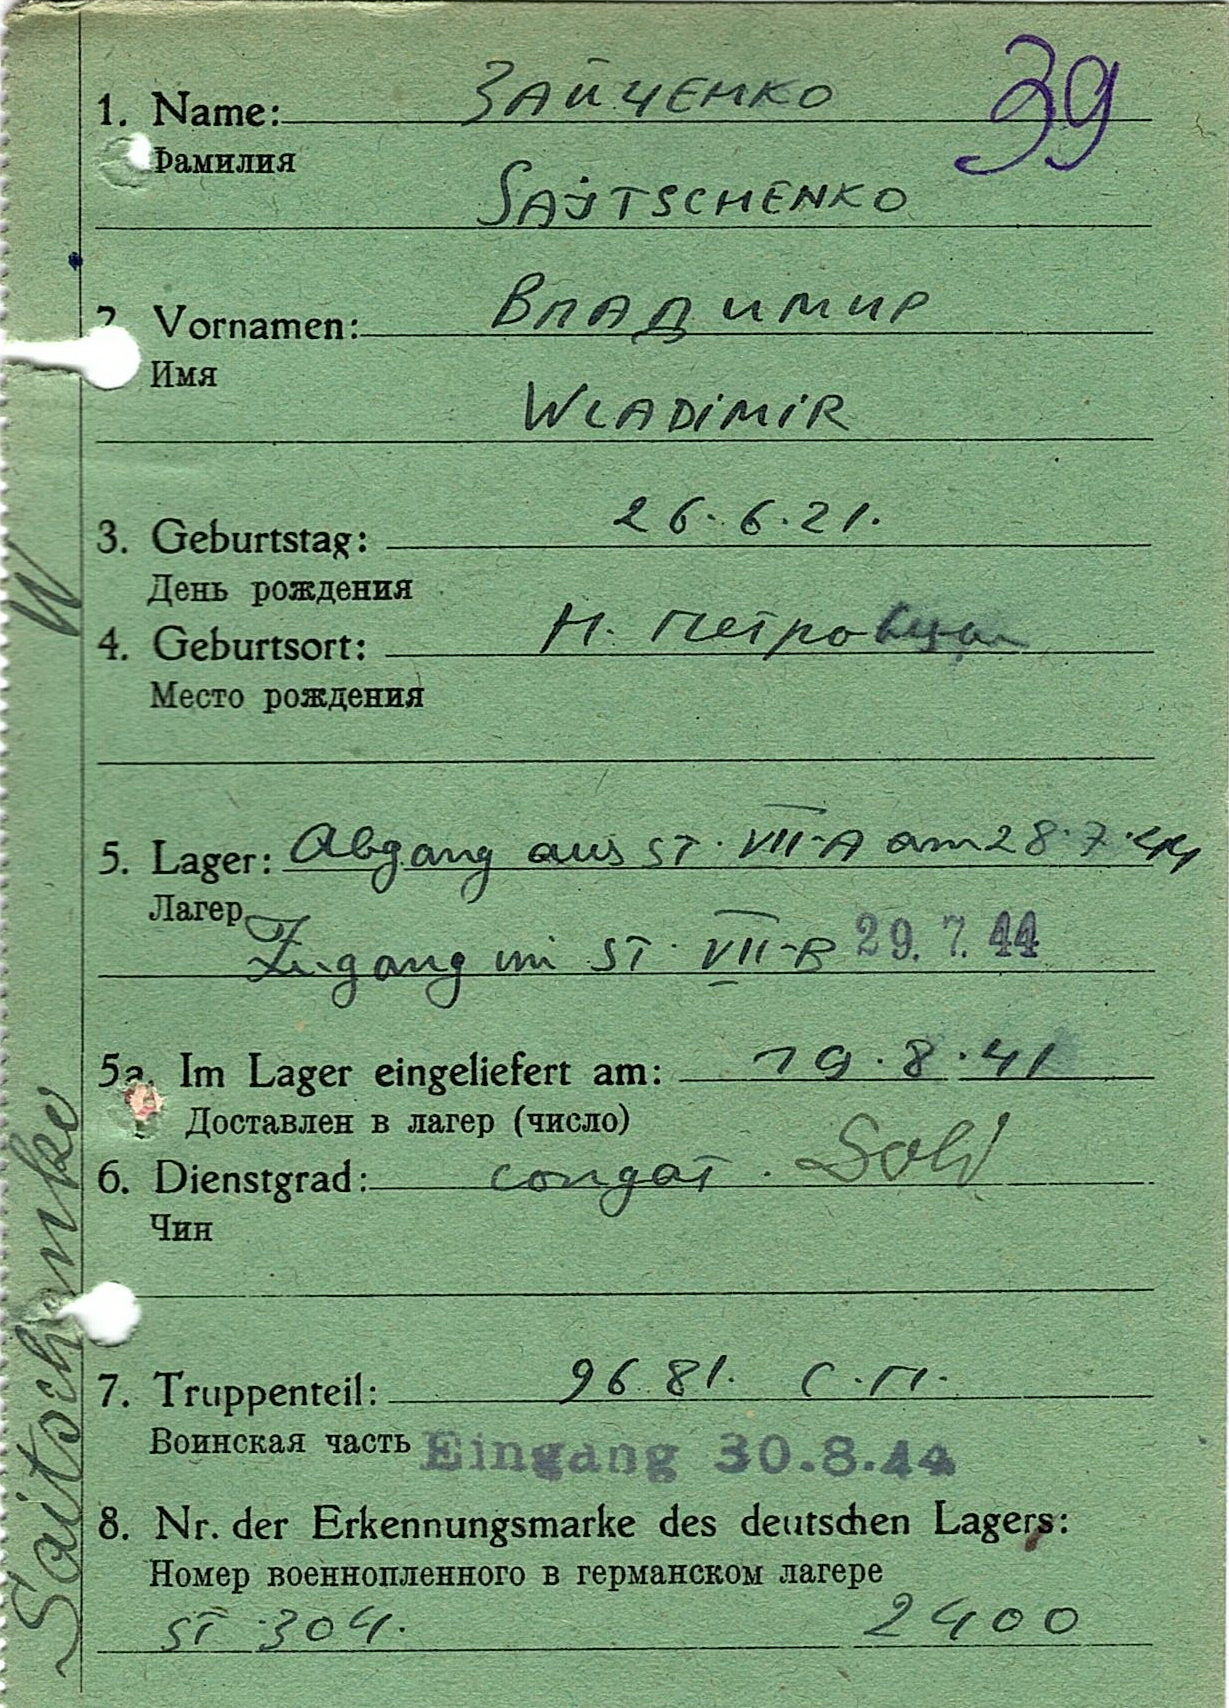 39
1. Name: ЗАЙЧЕНКО
Фамилия
SAJTSCHENKO
2. Vornamen: ВЛАДИМИР
Имя
WLADiMiR
3. Geburtstag: 26.6.21.
День рождения
4. Geburtsort: Н. Петро
Место рождения
5. Lager: Abgang aus ST. VII-A am 28.7.44
Лагер
Zugang im ST. VII-B 29. 7. 44
5a. Im Lager eingeliefert am: 19.8.41
Доставлен в лагер (число)
6. Dienstgrad: солдат. Sold
Чин
7. Truppenteil: 9681. С.П.
Воинская часть Eingang 30.8.44
8. Nr. der Erkennungsmarke des deutschen Lagers:
Номер военнопленного в германском лагере
ST 304. 2400
W
Saitschenko